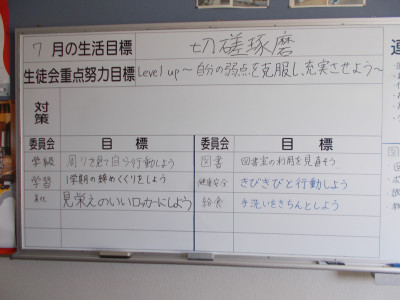 7月の生活目標 切磋琢磨
生徒会重点努力目標 Level up～自分の弱点を克服し、充実させよう～
対策
委員会 目標 委員会 目標
学級 周りを見て自ら行動しよう 図書 図書室の利用を見直そう
学習 1学期の締めくくりをしよう 健康安全 きびきびと行動しよう
美化 見栄えのいいロッカーにしよう 給食 手洗いをきちんとしよう